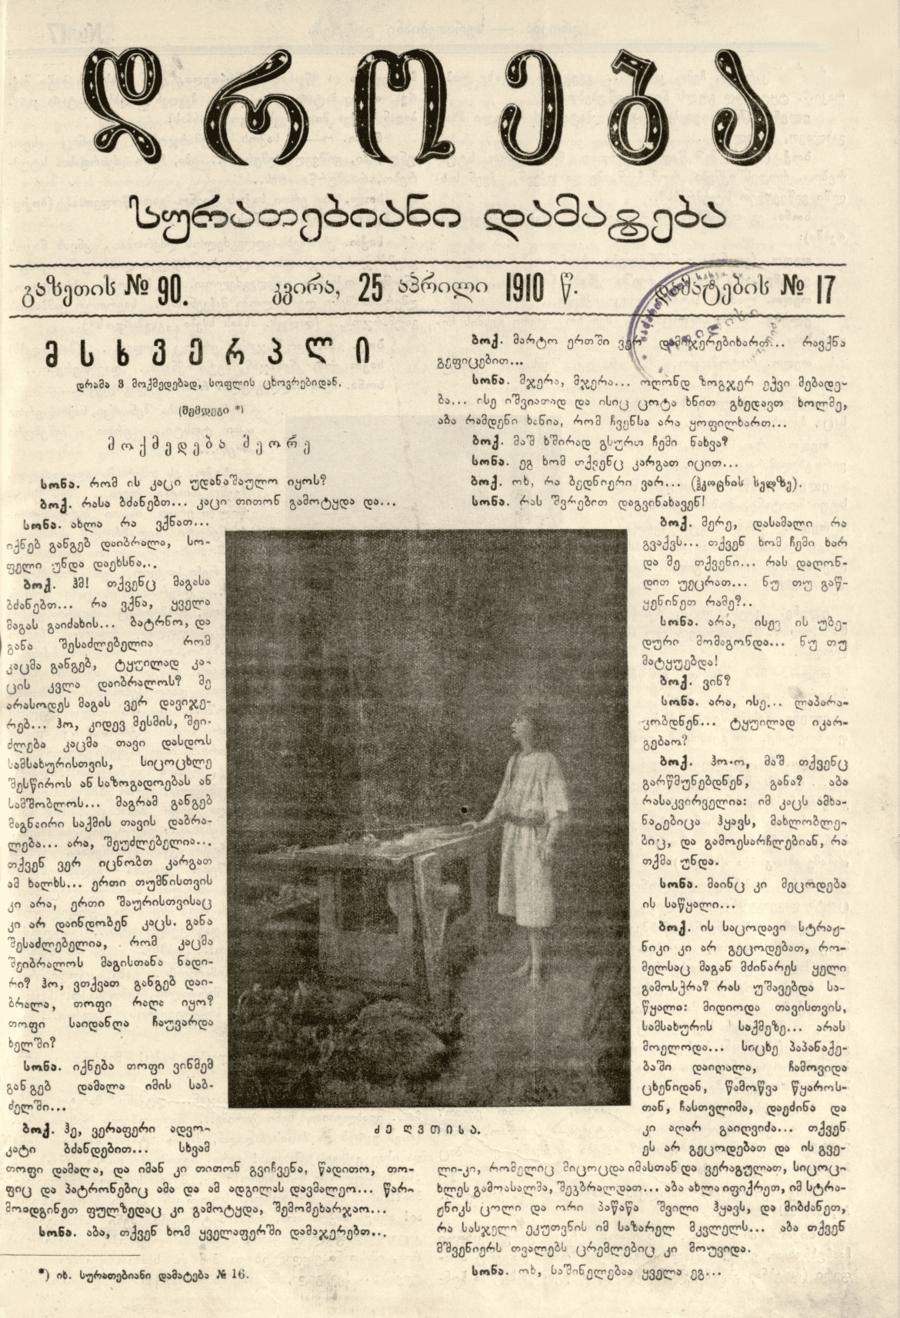 დროება
სურათებიანი დამატება
გაზეთის № 90.
კვირა, 25 აპრილი 1910 წ.
დამატების № 17
მსხვერპლი
დრამა 3 მოქმედებად, სოფლის ცხოვრებიდან.
(შემდეგი *)
მოქმედება მეორე
სონა. რომ ის კაცი უდანაშაულო იყოს?
ბოქ. რასა ბძანებთ... კაცი თითონ გამოტყდა და...
სონა. ახლა რა ვქნათ...
იქნებ განგებ დაიბრალა, სო-
ფელი უნდა დაეხსნა...
ბოქ. ჰმ! თქვენც მაგასა
ბძანებთ... რა ვქნა, ყველა
მაგას გაიძახის... ბატრნო, და
განა შესაძლებელია რომ
კაცმა განგებ, ტყუილად კა-
ცის კვლა დაიბრალოს? მე
არასოდეს მაგას ვერ დავიჯე-
რებ... ჰო, კიდევ მესმის, შეი-
ძლება კაცმა თავი დასდოს
სამსახურისთვის, სიცოცხლე
შესწიროს ან საზოგადოებას ან
სამშობლოს... მაგრამ განგებ
მაგნაირი საქმის თავის დაბრა-
ლება... არა, შეუძლებელია...
თქვენ ვერ იცნობთ კარგათ
ამ ხალხს... ერთი თუმნისთვის
კი არა, ერთი შაურისთვისაც
კი არ დაინდობენ კაცს. განა
შესაძლებელია, რომ კაცმა
შეიბრალოს მაგისთანა ნადი-
რი? ჰო, ვთქვათ განგებ დაი-
ბრალა, თოფი რაღა იყო?
თოფი საიდანღა ჩაუვარდა
ხელში?
სონა. იქნება თოფი ვინმემ
განგებ დამალა იმის საბ-
ძელში...
ბოქ. ჰე, ვერაფერი ადვო-
კატი ბძანდებით... სხვამ
თოფი დამალა, და იმან კი თითონ გვიჩვენა, წადითო, თო-
ფიც და პატრონებიც ამა და ამ ადგილას დავმალეო... წარ-
მოადგინეთ ფულზედაც კი გამოტყდა, შემომეხარჯაო...
სონა. აბა, თქვენ ხომ ყველაფერში დამაჯერებთ...
*) იხ. სურათებიანი დამატება № 16.
ბოქ. მარტო ერთში ვერ დამიჯერებიხართ... რავქნა
გეფიცებით...
სონა. მჯერა, მჯერა... ოღონდ ზოგჯერ ეჭვი მებადე-
ბა... ისე იშვიათად და ისიც ცოტა ხნით გხედავთ ხოლმე,
აბა რამდენი ხანია, რომ ჩვენსა არა ყოფილხართ...
ბოქ. მაშ ხშირად გსურთ ჩემი ნახვა?
სონა. ეგ ხომ თქვენც კარგათ იცით...
ბოქ. ოხ, რა ბედნიერი ვარ... (ჰკოცნის ხელზე).
სონა. რას შვრებით დაგვინახავენ!
ბოქ. მერე, დასამალი რა
გვაქვს... თქვენ ხომ ჩემი ხარ
და მე თქვენი... რას დაღონ-
დით უეცრათ... ნუ თუ გაწ-
ყენინეთ რამე?..
სონა. არა, ისე ის უბე-
დური მომაგონდა... ნუ თუ
მატყუებდა!
ბოქ. ვინ?
სონა. არა, ისე... ლაპარა-
კობდნენ... ტყუილად იკარ-
გებაო?
ბოქ. ჰო-ო, მაშ თქვენც
გარწმუნებდნენ, განა? აბა
რასაკვირველია: იმ კაცს ამხა-
ნაგებიცა ჰყავს, მახლობლე-
ბიც, და გამოესარჩლებიან, რა
თქმა უნდა.
სონა. მაინც კი მეცოდება
ის საწყალი...
ბოქ. ის საცოდავი სტრაჟ-
ნიკი კი არ გეცოდებათ, რო-
მელსაც მაგან მძინარეს ყელი
გამოსჭრა? რას უშავებდა სა-
წყალი: მიდიოდა თავისთვის,
სამსახურის საქმეზე... არას
მოელოდა... სიცხე პაპანაქე-
ბაში დაიღალა, ჩამოვიდა
ცხენიდან, წამოწვა წყაროს-
თან, ჩასთვლიმა, დაეძინა და
კი აღარ გაიღვიძა... თქვენ
ეს არ გეცოდებათ და ის გვე-
ლი-კი, რომელიც მიცოცდა იმასთან და ვერაგულათ, სიცოც-
ხლეს გამოასალმა, შეგბრალდათ... აბა ახლა იფიქრეთ, იმ სტრა-
ჟნიკს ცოლი და ორი პაწაწა შვილი ჰყავს, და მიბძანეთ,
რა სასჯელი ეკუთვნის იმ საზარელ მკვლელს... აბა თქვენ
მშვენიერს თვალებს ცრემლებიც კი მოუვიდა.
სონა. ოხ, საშინელებაა ყველა ეგ...
ძე ღვთისა.